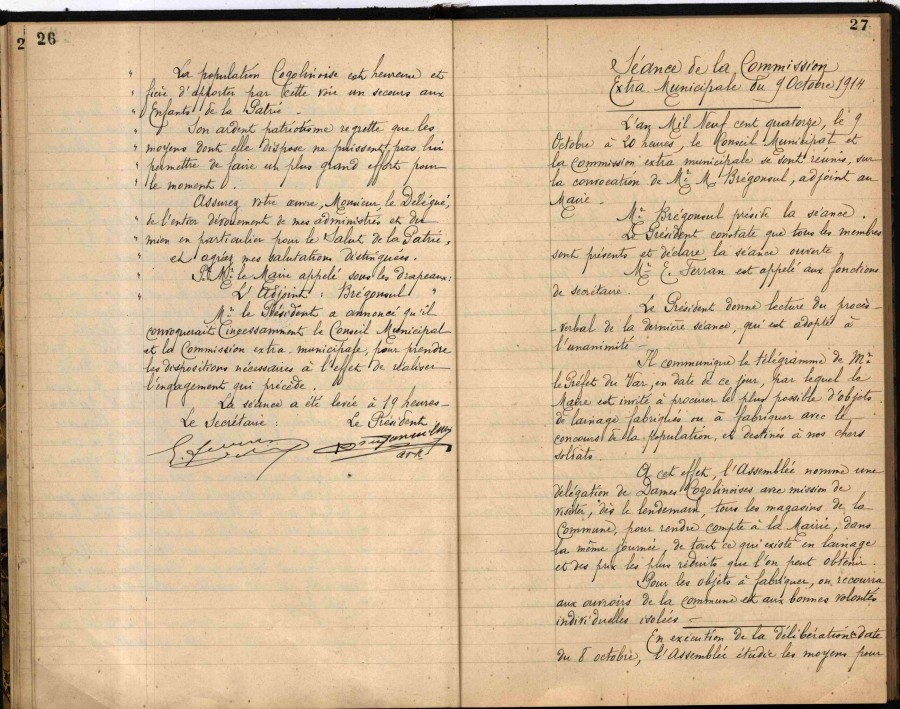 2 26
" La population Cogolinoise est heureuse et
" fière d'apporter par cette voie un secours aux
" Enfants de la Patrie.
" Son ardent patriotisme regrette que les
" moyens dont elle dispose ne puissent pas lui
" permettre de faire un plus grand effort pour
" le moment.
" Assurez votre œuvre, Monsieur le Délégué,
" de l'entier dévouement de mes administrés et du
" mien en particulier pour le Salut de la Patrie,
" et agréez mes salutations distinguées.
" Pr Mr le Maire appelé sous les drapeaux:
" L'Adjoint: Brégonsul "
Mr le Président a annoncé qu'il
convoquerait incessamment le Conseil Municipal
et la Commission extra-municipale, pour prendre
les dispositions nécessaires à l'effet de réaliser
l'engagement qui précède.
La séance a été levée à 19 heures -
Le Secrétaire: Le Président
27
Séance de la Commission
Extra Municipale du 9 Octobre 1914
L'an Mil Neuf cent quatorze, le 9
Octobre à 20 heures, le Conseil Municipal et
la Commission extra municipale se sont réunis, sur
la convocation de Mr M. Brégonsul, adjoint au
Maire.
Mr Brégonsul préside la séance.
Le Président constate que tous les membres
sont présents et déclare la séance ouverte.
Mr E. Ferran est appelé aux fonctions
de secrétaire.
Le Président donne lecture du procès
-verbal de la dernière séance, qui est adopté à
l'unanimité -
Il communique le télégramme de Mr
le Préfet du Var, en date de ce jour, par lequel le
Maire est invité à procurer le plus possible d'objets
de lainage fabriqués ou à fabriquer avec le
concours de la population, et destinés à nos chers
soldats.
A cet effet, l'Assemblée nomme une
délégation de Dames Cogolinoises avec mission de
visiter, dès le lendemain, tous les magasins de la
Commune, pour rendre compte à la Mairie, dans
la même journée, de tout ce qui existe en lainage
et des prix les plus réduits que l'on peut obtenir.
Pour les objets à fabriquer, on recourra
aux ouvroirs de la commune et aux bonnes volontés
individuelles isolées -
En exécution de la délibération en date
du 8 octobre, l'Assemblée étudie les moyens pour